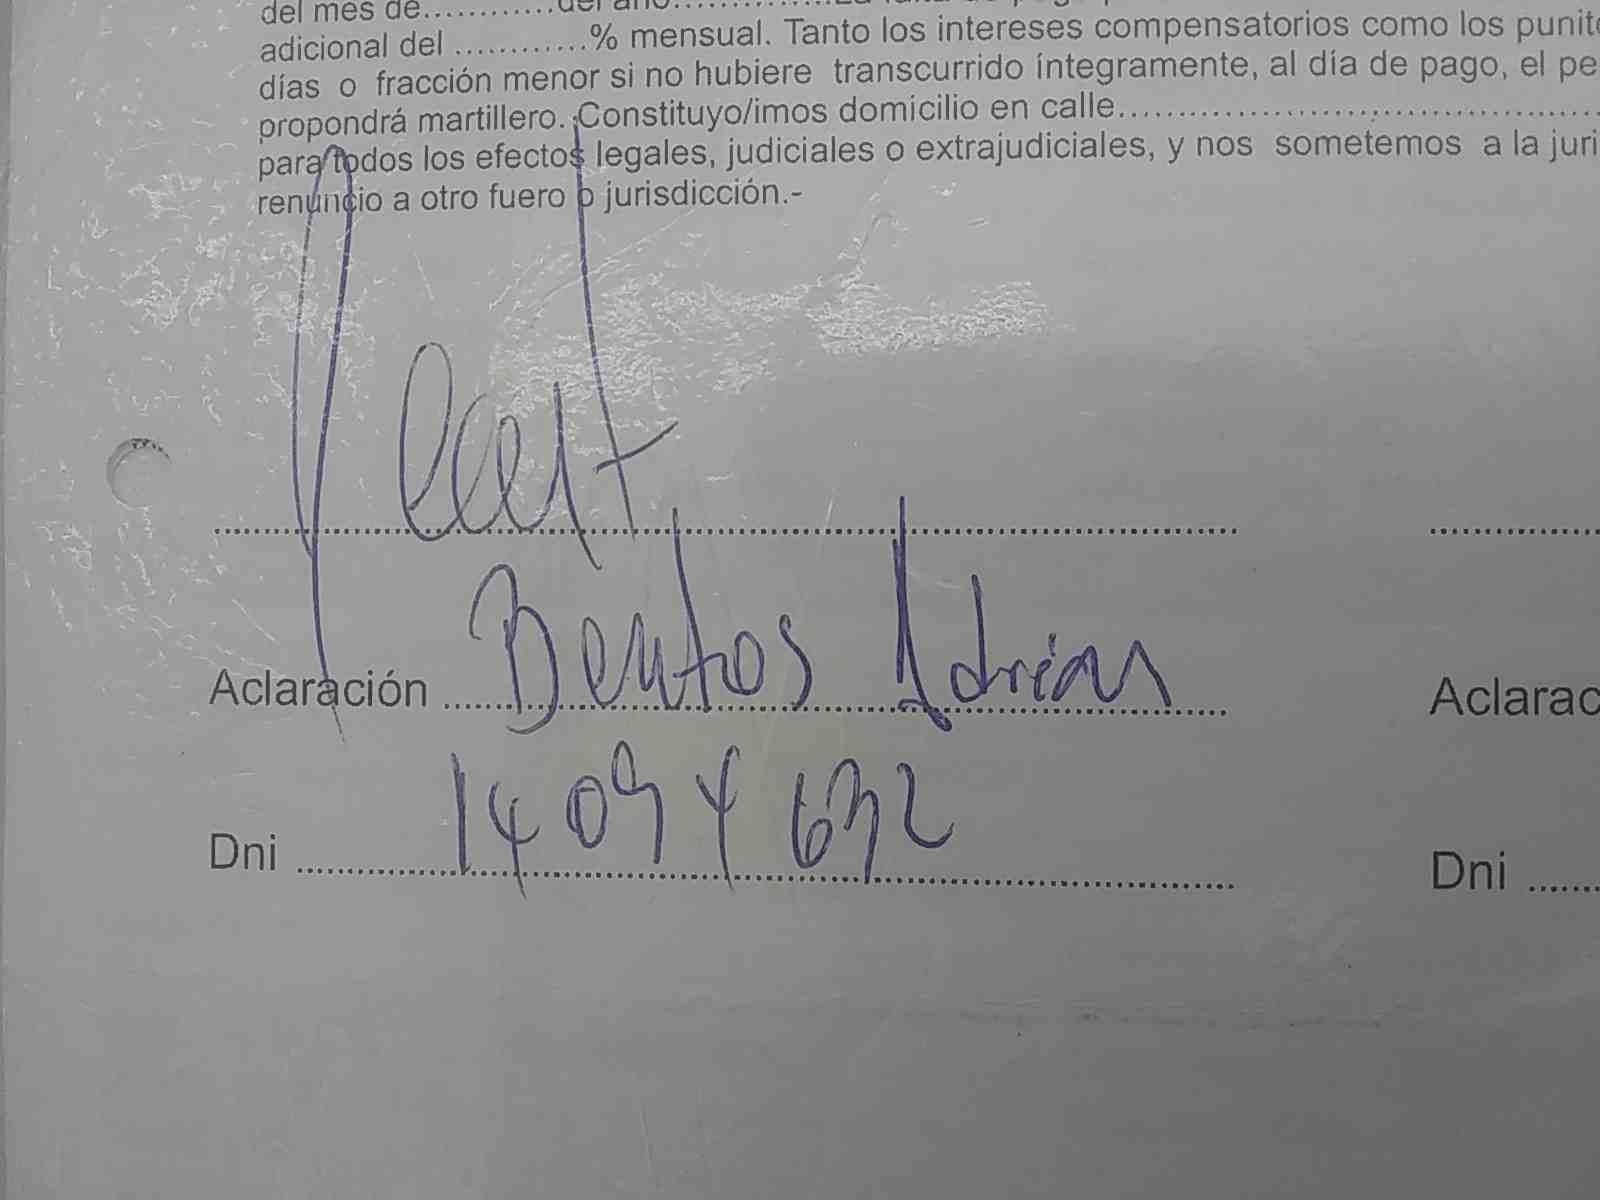 del mes de............del año
adicional del ............% mensual. Tanto los intereses compensatorios como los punit
días o fracción menor si no hubiere transcurrido íntegramente, al día de pago, el pe
propondrá martillero. Constituyo/imos domicilio en calle....................................
para todos los efectos legales, judiciales o extrajudiciales, y nos sometemos a la juri
renuncio a otro fuero o jurisdicción.-
Aclaración Bentos Adrian Aclarac
Dni 14094632 Dni